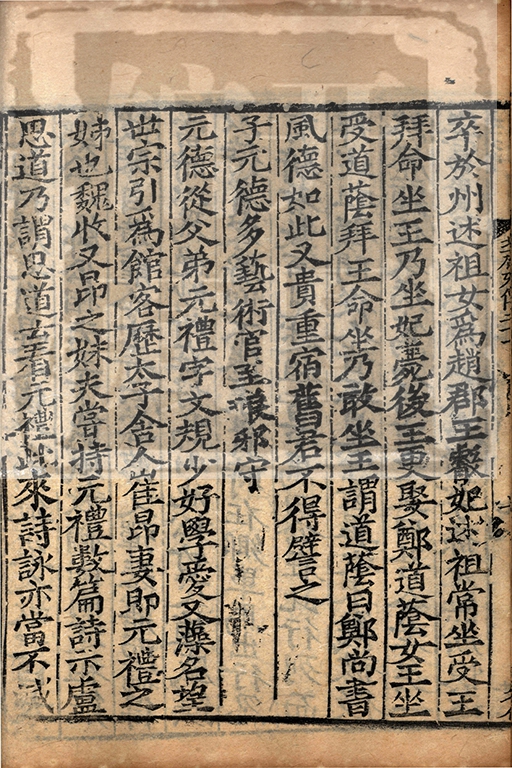 卒於州述祖女爲趙郡王叡妃述祖常坐受王
拜命坐王乃坐妃薨後王更娶鄭道蔭女王坐
受道蔭拜王命坐乃敢坐王謂道蔭曰鄭尚書
風德如此又貴重宿舊君不得譬之
子元德多藝術官至琅邪守
元德從父弟元禮字文規少好學愛文藻名望
世宗引爲館客歷太子舍人崔昂妻即元禮之
姊也魏收又昂之妹夫嘗持元禮數篇詩示盧
思道乃謂思道云看元禮比來詩詠亦當不減